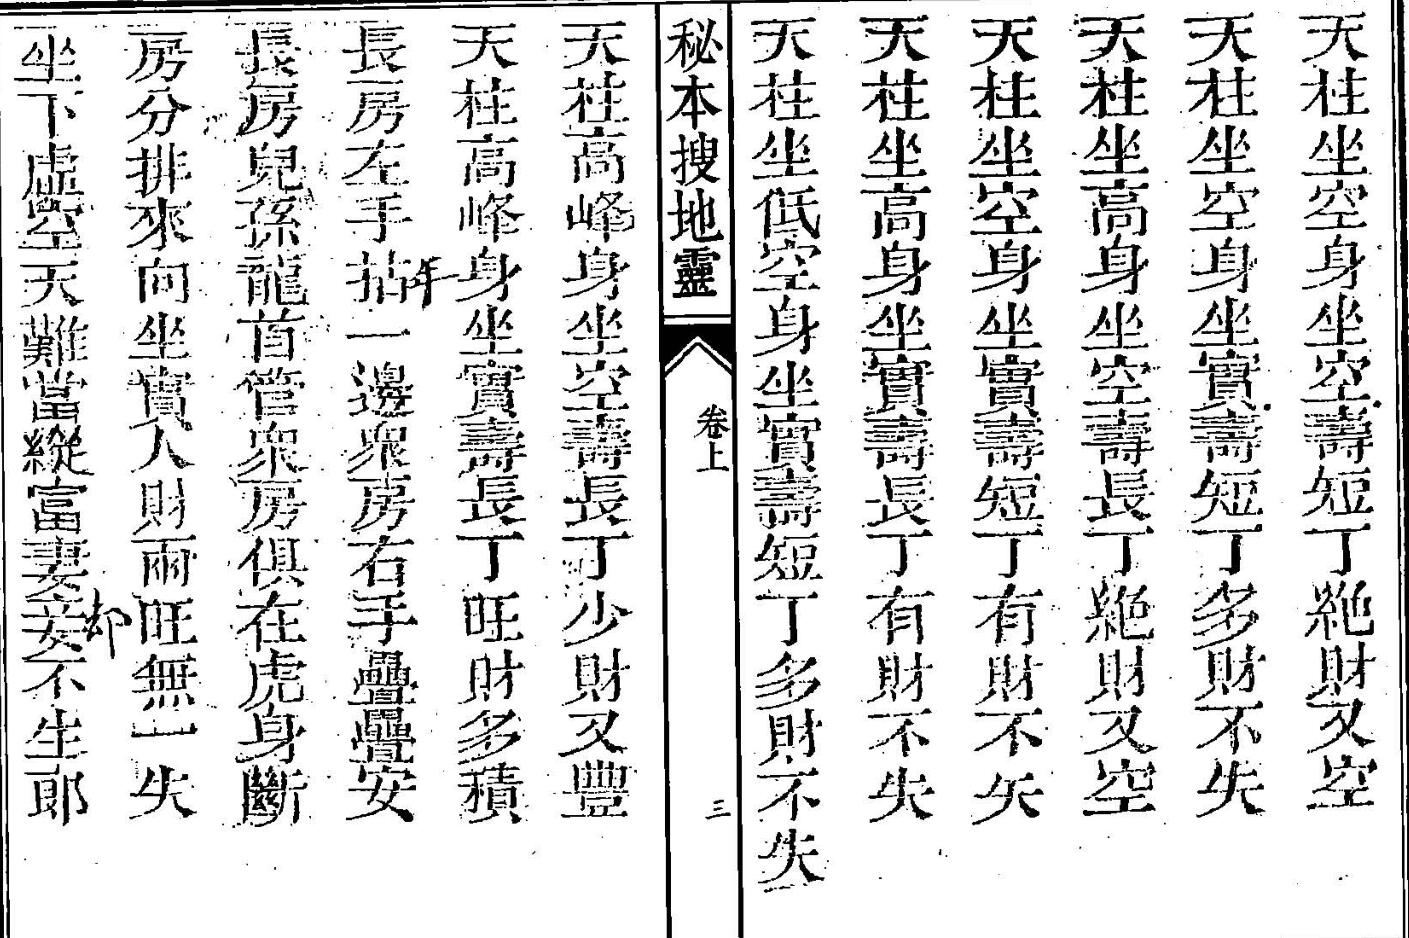 天柱坐空身坐空壽短丁絶財又空
天柱坐空身坐實壽短丁多財不失
天柱坐高身坐空壽長丁絶財又空
天柱坐空身坐實壽短丁有財不失
天柱坐高身坐實壽長丁有財不失
天柱坐低空身坐實壽短丁多財不失
秘本搜地靈
卷上
三
天柱高峰身坐空壽長丁少財又豐
天柱高峰身坐實壽長丁旺財多積
長房左手拈一邊衆房右手疊疊安
長房兒孫龍首管衆房俱在虎身斷
房分排來向坐實人財兩旺無一失
坐下虛空天難當縱富妻妾不生郎
年
却